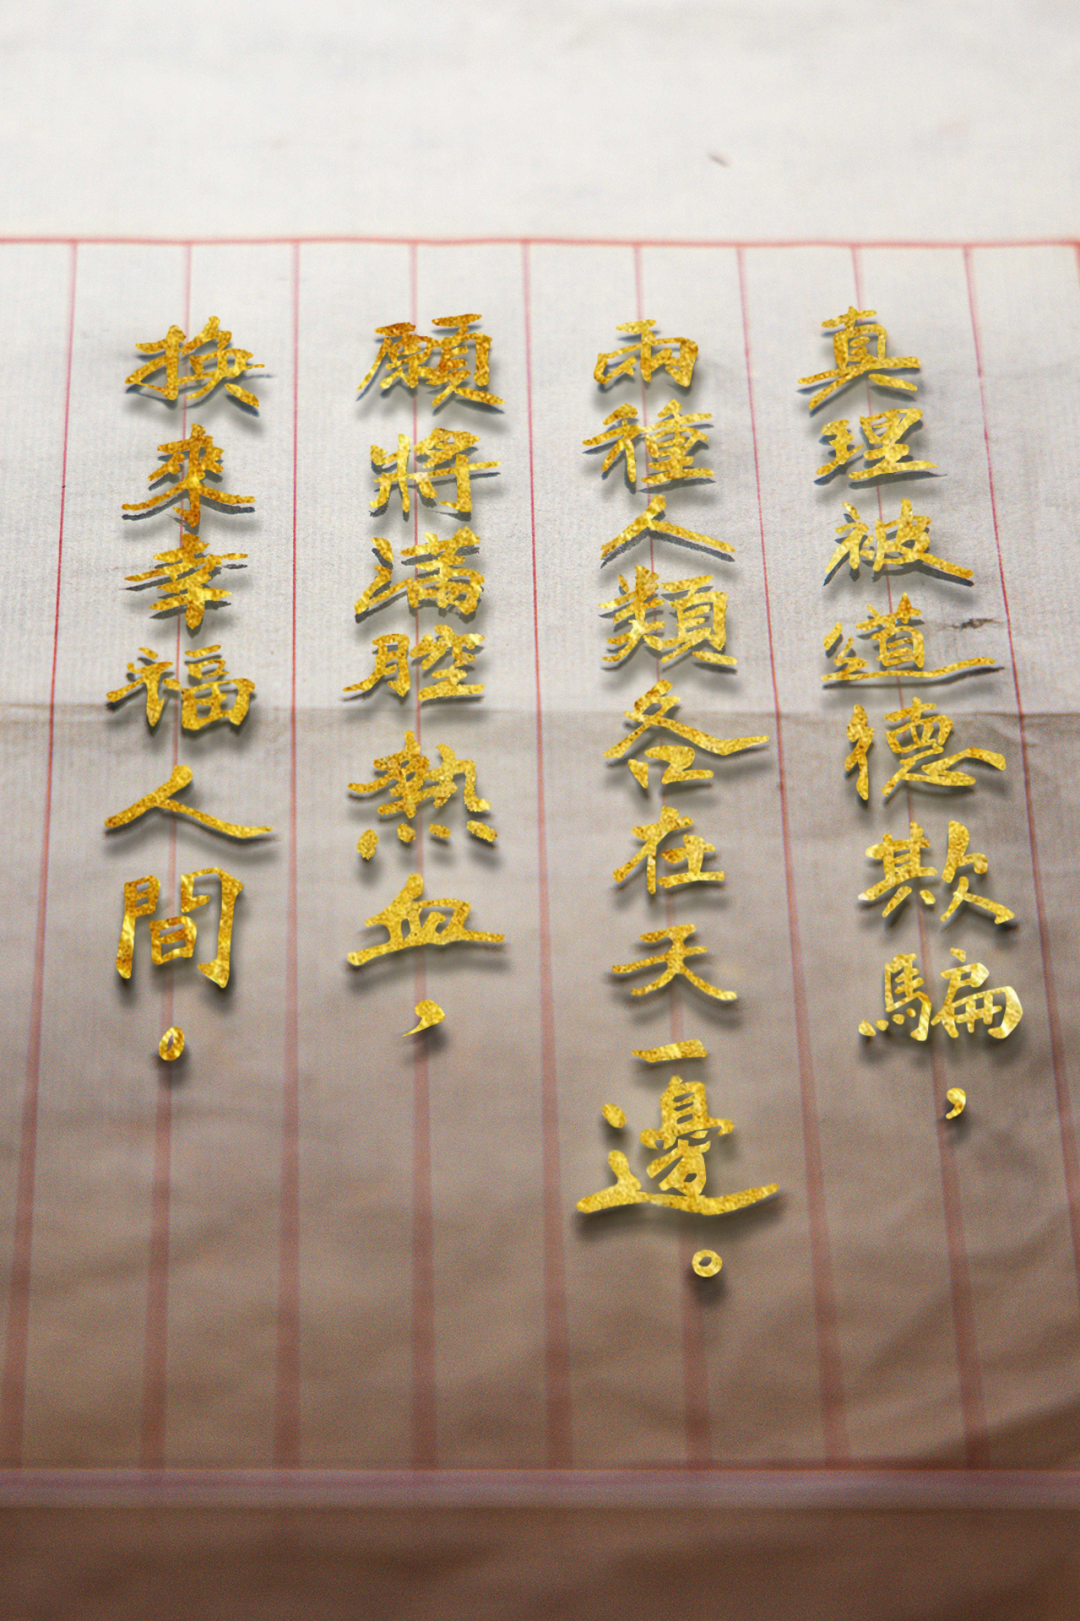 真理被道德欺騙，
兩種人類各在天一邊。
願將滿腔熱血，
換來幸福人間。